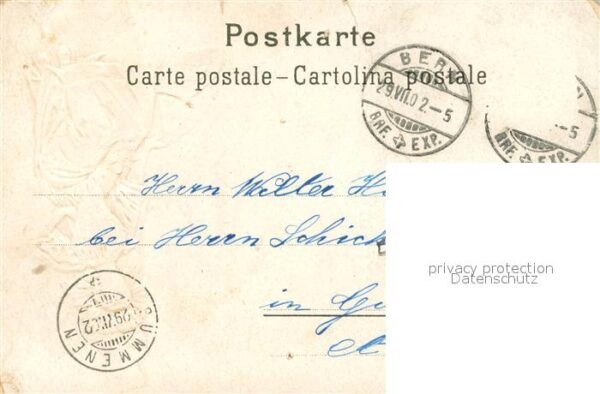 Postkarte
Carte postale – Cartolina postale
BERN
29.VII.02.–5
BRF. EXP.
–5
BRF. EXP.
Herrn Walter
bei Herrn Schick
in
privacy protection
Datenschutz
29.VII.02
GÜMMENEN